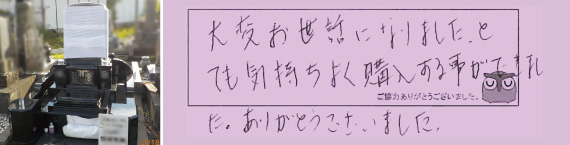 大変お世話になりました。と
ても気持ちよく購入する事ができまし
ご協力ありがとうございました。
た。ありがとうございました。